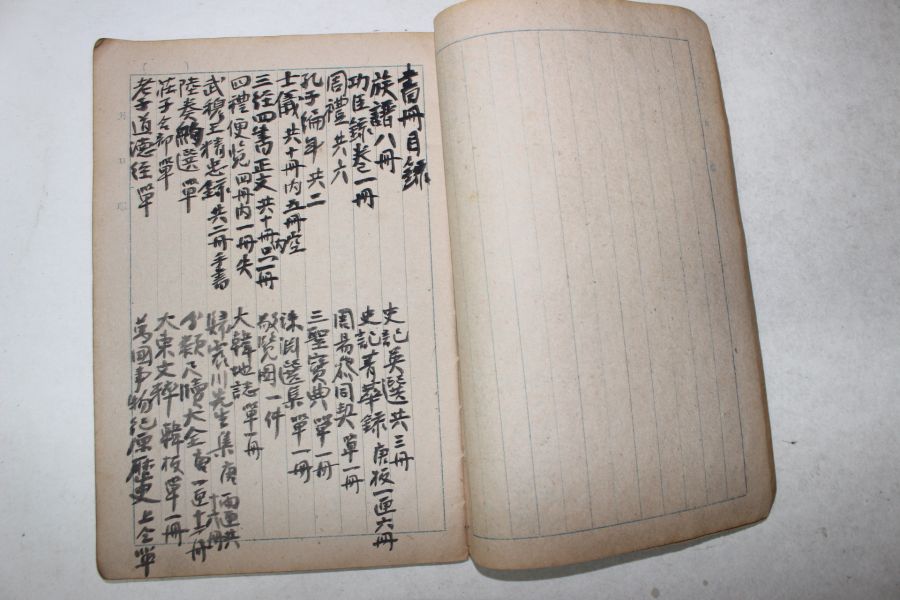 書冊目録
族譜八冊
功臣録卷一冊
周禮 共六
孔子編年 共二
士儀 共十冊内五冊空
三経四書正文 共十冊内一冊
四禮便覧 四冊内一冊失
武穆王精忠録 共二冊手書
陸奏選 單
莊子全部 單
老子道徳経 單
史記英選 共三冊
史記菁華録 庚板一匣六冊
周易參同契 單一冊
三聖寶典 單一冊
洙泗選集 單一冊
覧図一件
大韓地誌 單一冊
歸震川先生集 兩匣共十六冊
分類尺牘大全 一匣十一冊
大東文粹 韓板單一冊
萬國事物紀原歴史 上仝單